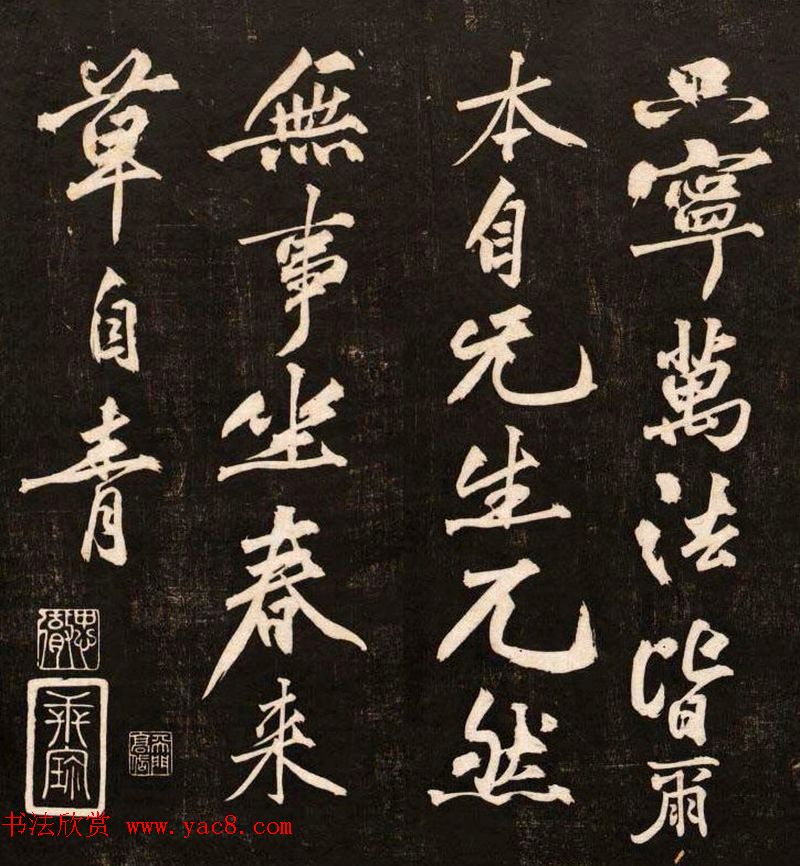 只寧萬法皆爾
本自无生兀然
無事坐春来
草自青
书法欣赏 www.yac8.com